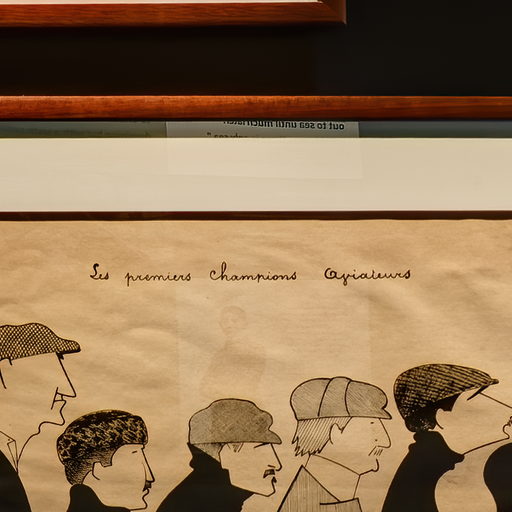 out to sea until much later.
Les premiers Champions Aviateurs